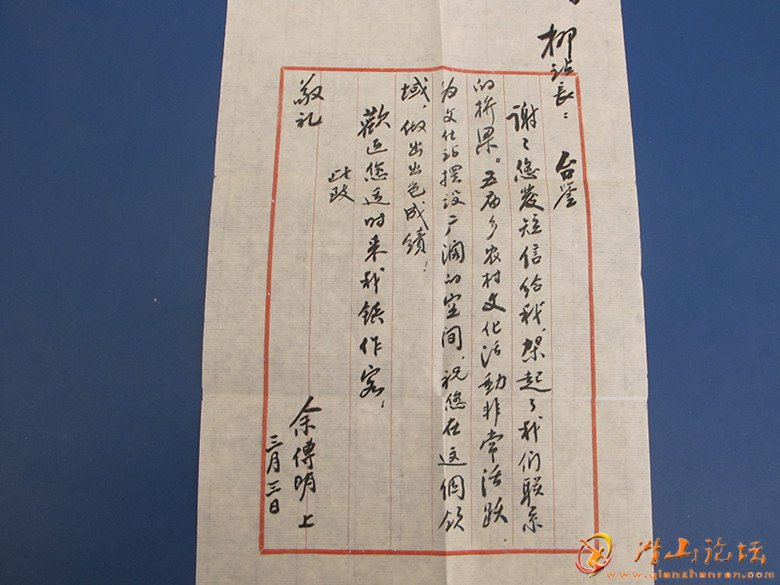 柳站长： 台鉴
谢々您发短信给我，架起了我们联系
的桥梁。五庙乡农村文化活動非常活跃，
为文化站摆设广阔的空间，祝您在这個领
域，做出出色成绩！
歡迎您适时来我饭作客，
此致
敬礼
余傅明上
三月三日
潜山论坛
www.qianshanren.com